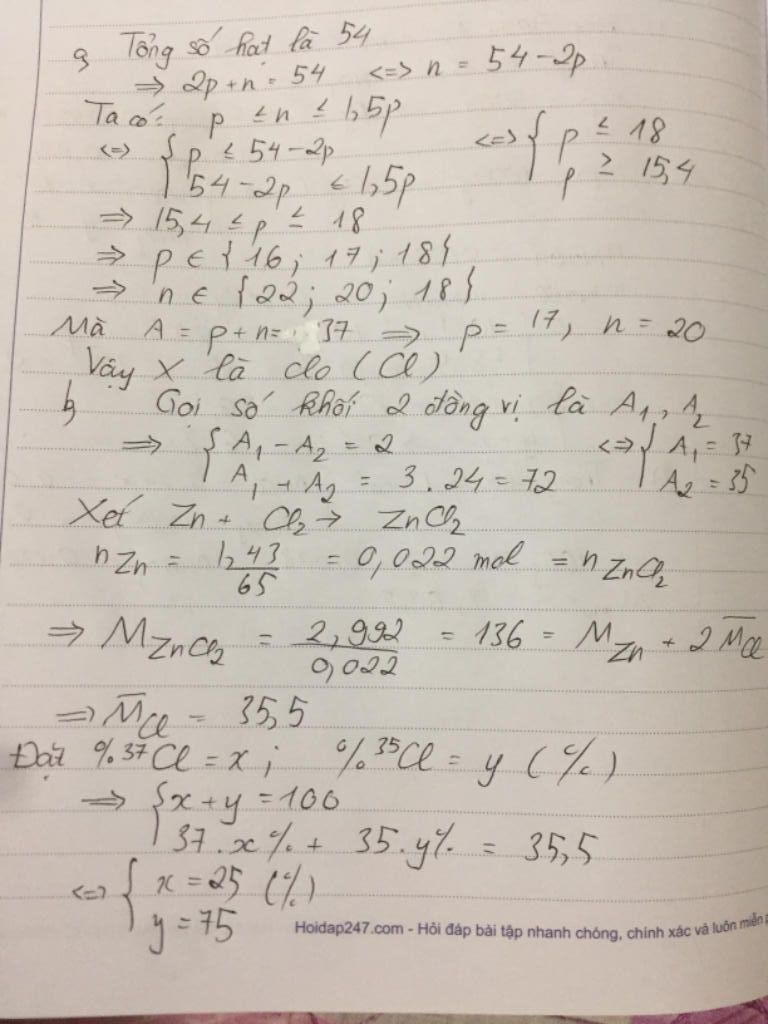 a, Tổng số hạt là 54
⇒ 2p + n = 54 <=> n = 54 - 2p
Ta có: p ≤ n ≤ 1,5p
<=> { p ≤ 54 - 2p <=> { p ≤ 18
54 - 2p ≤ 1,5p p ≥ 15,4
⇒ 15,4 ≤ p ≤ 18
⇒ p ∈ {16; 17; 18}
⇒ n ∈ {22; 20; 18}
Mà A = p + n = 37 ⇒ p = 17, n = 20
Vậy X là clo (Cl)
b, Gọi số khối 2 đồng vị là A₁, A₂
⇒ { A₁ - A₂ = 2 <=> { A₁ = 37
A₁ + A₂ = 3.24 = 72 A₂ = 35
Xét Zn + Cl₂ → ZnCl₂
nZn = 1,43/65 = 0,022 mol = nZnCl₂
⇒ MZnCl₂ = 2,992/0,022 = 136 = MZn + 2M̅Cl
⇒ M̅Cl = 35,5
Đặt %³⁷Cl = x; %³⁵Cl = y (%)
⇒ { x + y = 100
37.x% + 35.y% = 35,5
<=> { x = 25 (%)
y = 75
Hoidap247.com - Hỏi đáp bài tập nhanh chóng, chính xác và luôn miễn